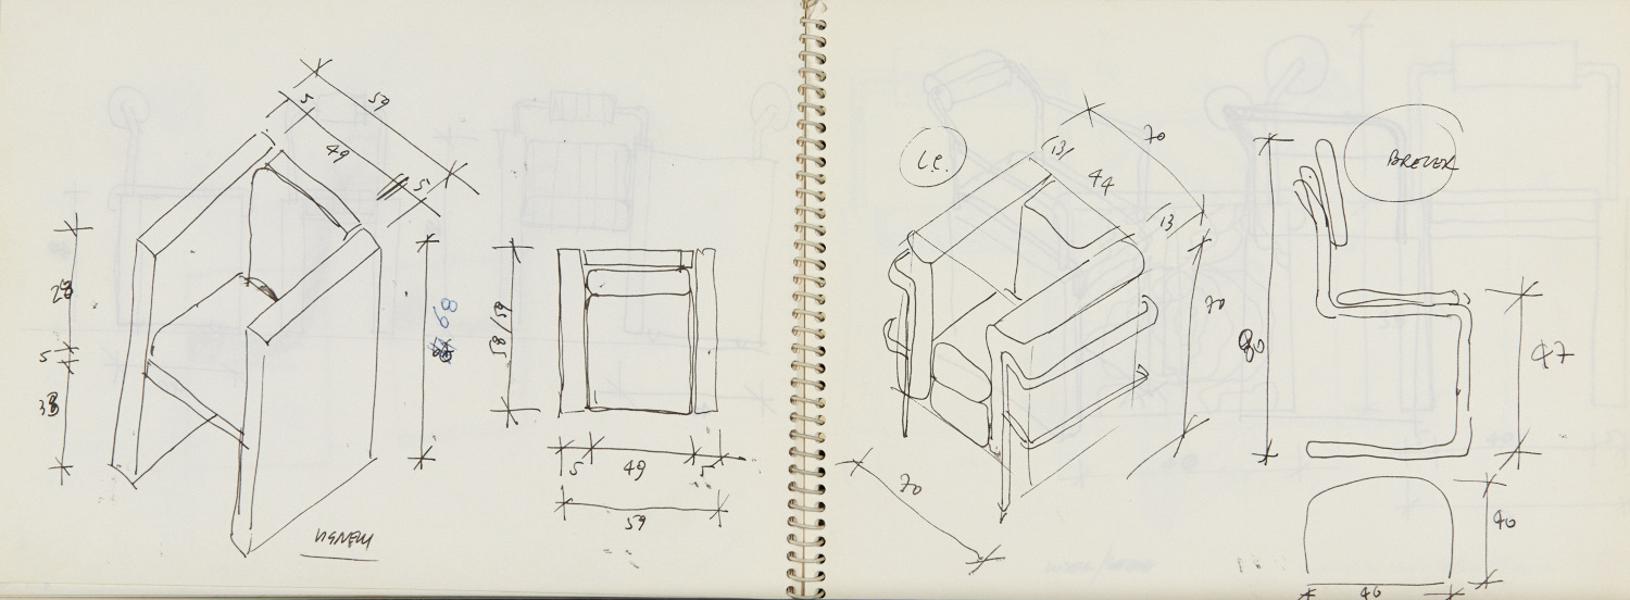 59
5
49
5
28
5
38
68
58/59
5
49
5
59
VIGNELLI
L.C.
13
44
13
70
70
70
BREUER
80
47
40
46